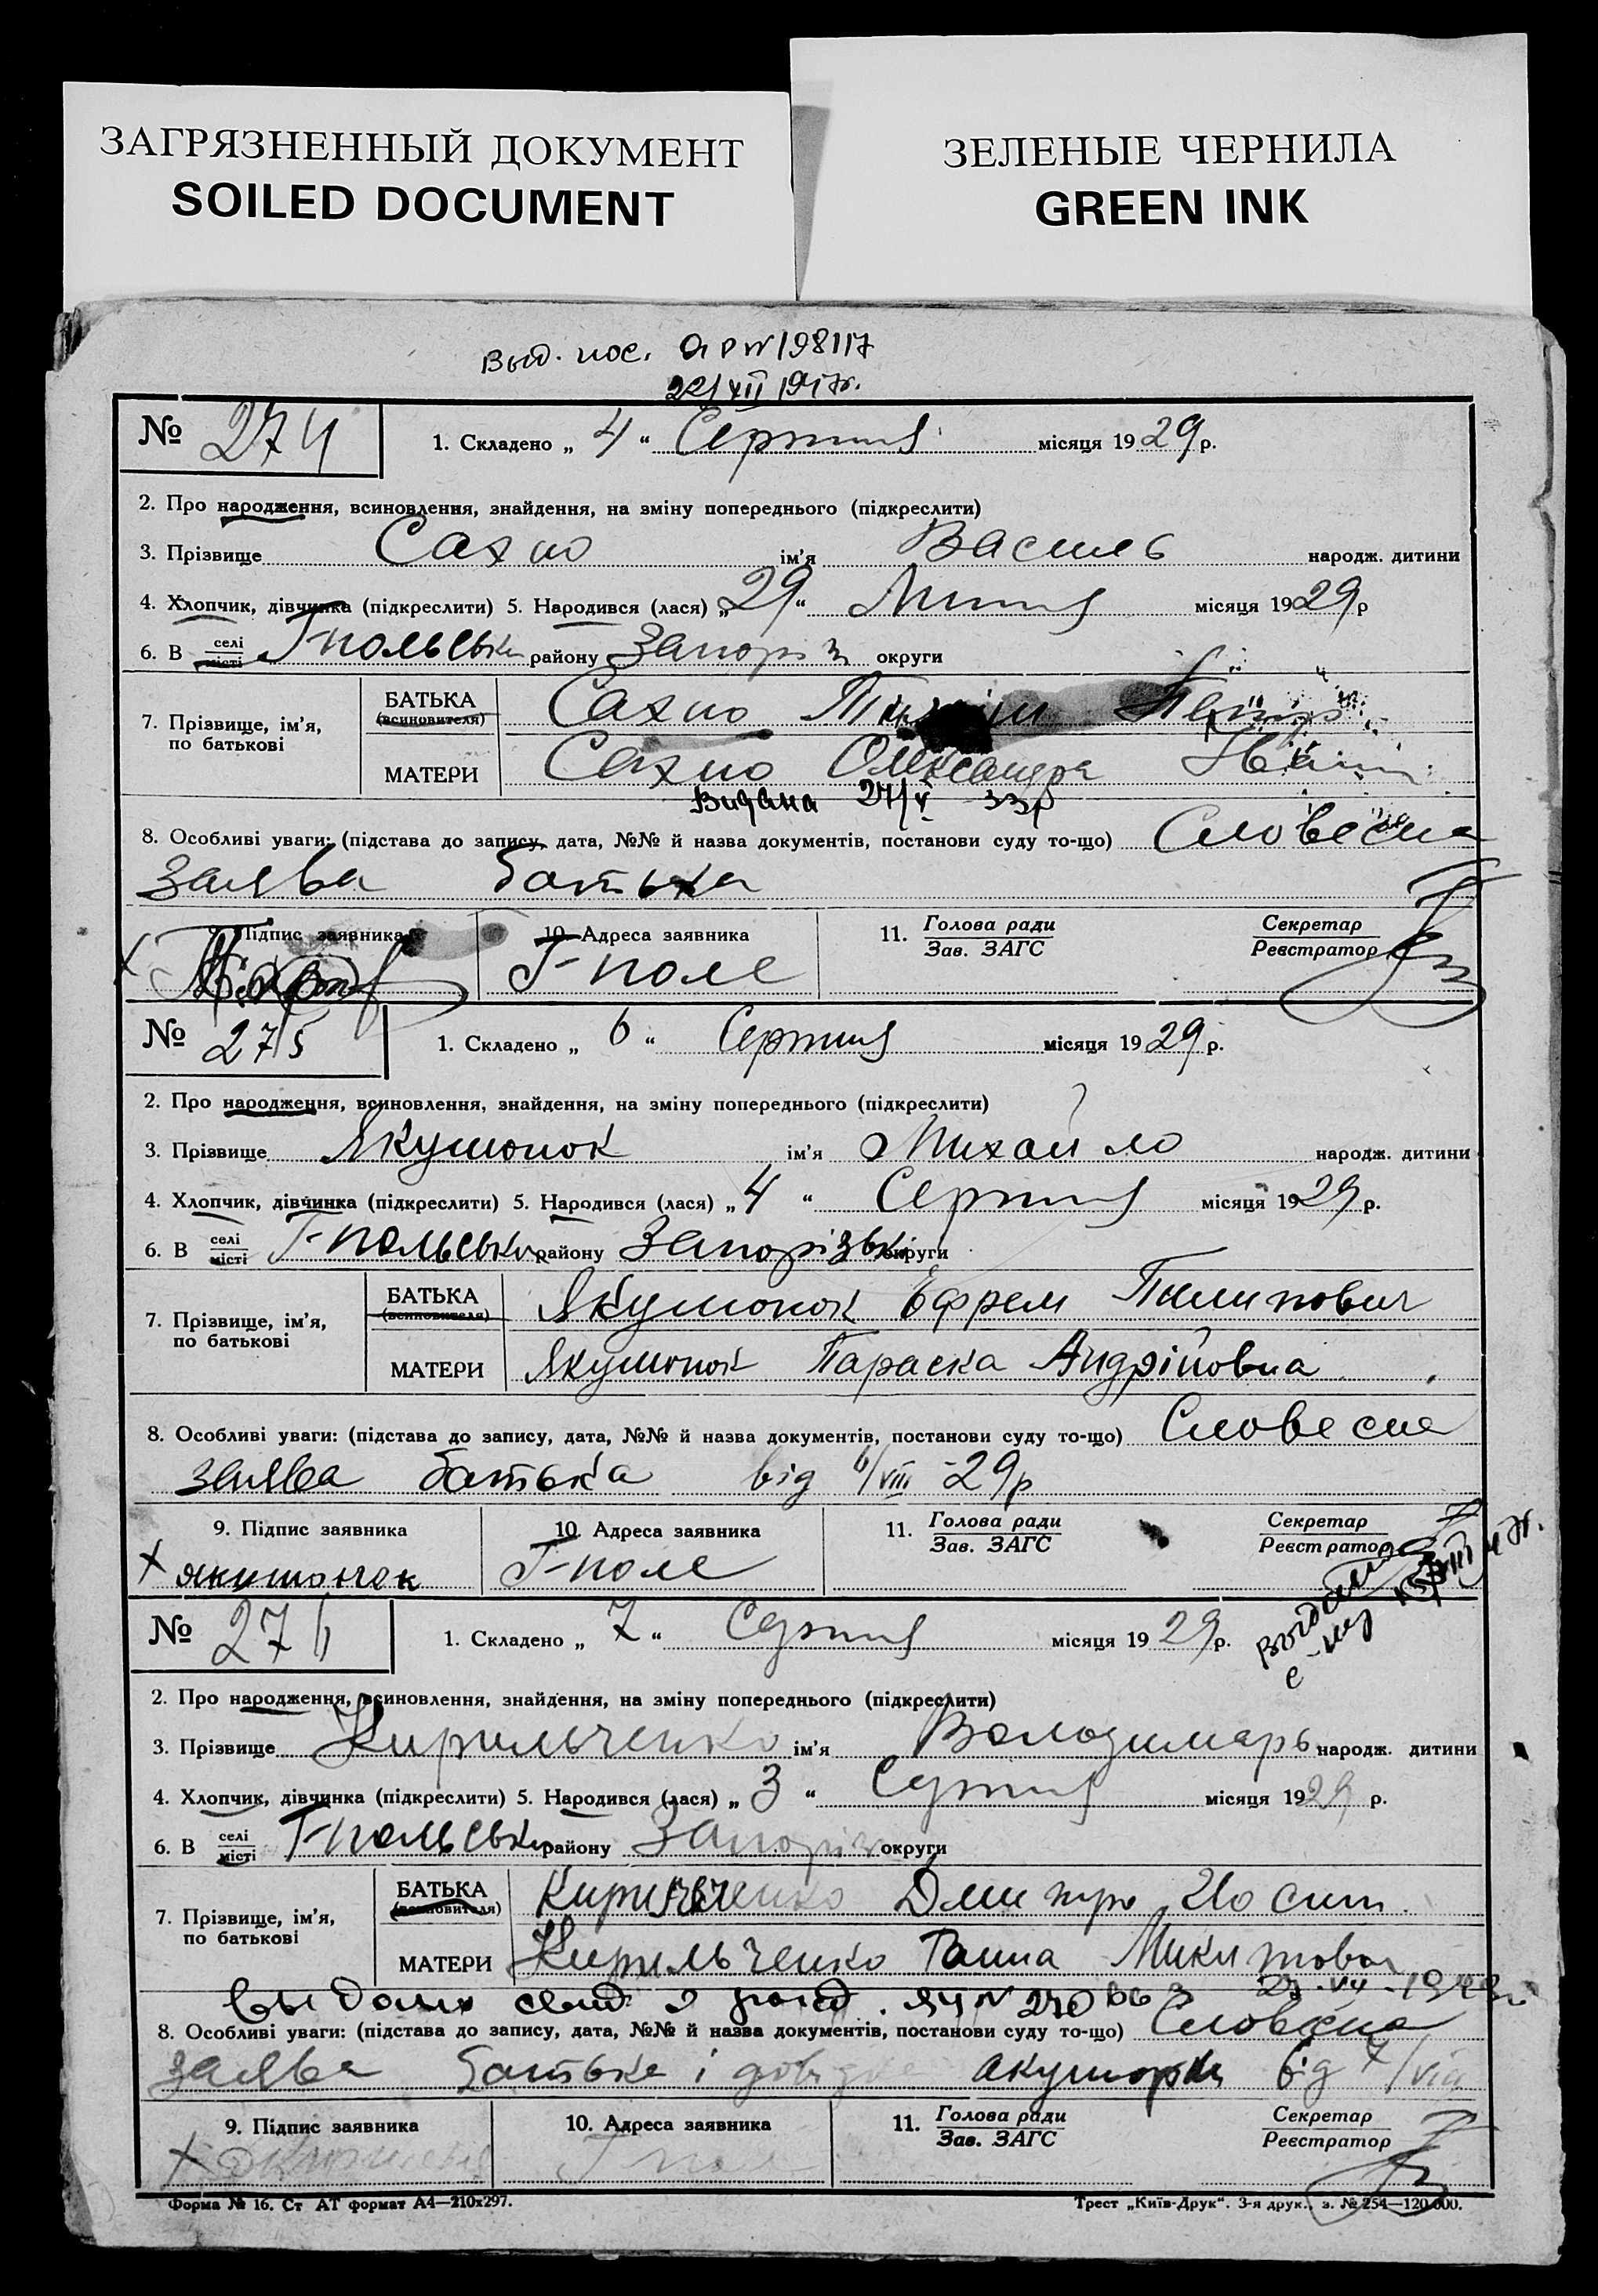 ЗАГРЯЗНЕННЫЙ ДОКУМЕНТ
SOILED DOCUMENT
ЗЕЛЕНЫЕ ЧЕРНИЛА
GREEN INK
Выд. пос.
№ 274 1. Складено „ 4 “ Серпня місяця 1929 р.
2. Про народження, всиновлення, знайдення, на зміну попереднього (підкреслити)
3. Прізвище Сахно ім’я Василь народж. дитини
4. Хлопчик, дівчинка (підкреслити) 5. Народився (лася) „ 29 “ Липня місяця 1929 р
6. В селі місті Г-польськ району Запоріз округи
7. Прізвище, ім’я, по батькові
БАТЬКА (всиновителя) Сахно
МАТЕРИ Сахно Олександра
Видана 33р
8. Особливі уваги: (підстава до запису, дата, №№ й назва документів, постанови суду то-що) Словесна
заява батька
9. Підпис заявника 10. Адреса заявника 11. Голова ради Зав. ЗАГС Секретар Реєстратор
Г-поле
№ 275 1. Складено „ 6 “ Серпня місяця 1929 р.
2. Про народження, всиновлення, знайдення, на зміну попереднього (підкреслити)
3. Прізвище Якушонок ім’я Михайло народж. дитини
4. Хлопчик, дівчинка (підкреслити) 5. Народився (лася) „ 4 “ Серпня місяця 1929 р.
6. В селі місті Г-польськ району Запорізьк округи
7. Прізвище, ім’я, по батькові
БАТЬКА (всиновителя) Якушонок Ефрем Пилипович
МАТЕРИ Якушонок Параска Андрійовна
8. Особливі уваги: (підстава до запису, дата, №№ й назва документів, постанови суду то-що) Словесна
заява батька від 6/VIII-29р
9. Підпис заявника 10. Адреса заявника 11. Голова ради Зав. ЗАГС Секретар Реєстратор
Х Якушонок Г-поле
№ 276 1. Складено „ 7 “ Серпня місяця 1929 р.
2. Про народження, всиновлення, знайдення, на зміну попереднього (підкреслити)
3. Прізвище Кирильченко ім’я Володимарь народж. дитини
4. Хлопчик, дівчинка (підкреслити) 5. Народився (лася) „ 3 “ Серпня місяця 1929 р.
6. В селі місті Г-польськ району Запоріз округи
7. Прізвище, ім’я, по батькові
БАТЬКА (всиновителя) Кирильченко Дмитро Йосип.
МАТЕРИ Кирильченко Ганна Микитовна
8. Особливі уваги: (підстава до запису, дата, №№ й назва документів, постанови суду то-що) Словесна
заява батька і акушорки від 7/VIII
9. Підпис заявника 10. Адреса заявника 11. Голова ради Зав. ЗАГС Секретар Реєстратор
Г поле
Форма № 16. Ст АТ формат А4—210х297. Трест „Київ-Друк“. 3-я друк., з. № 254—120.000.